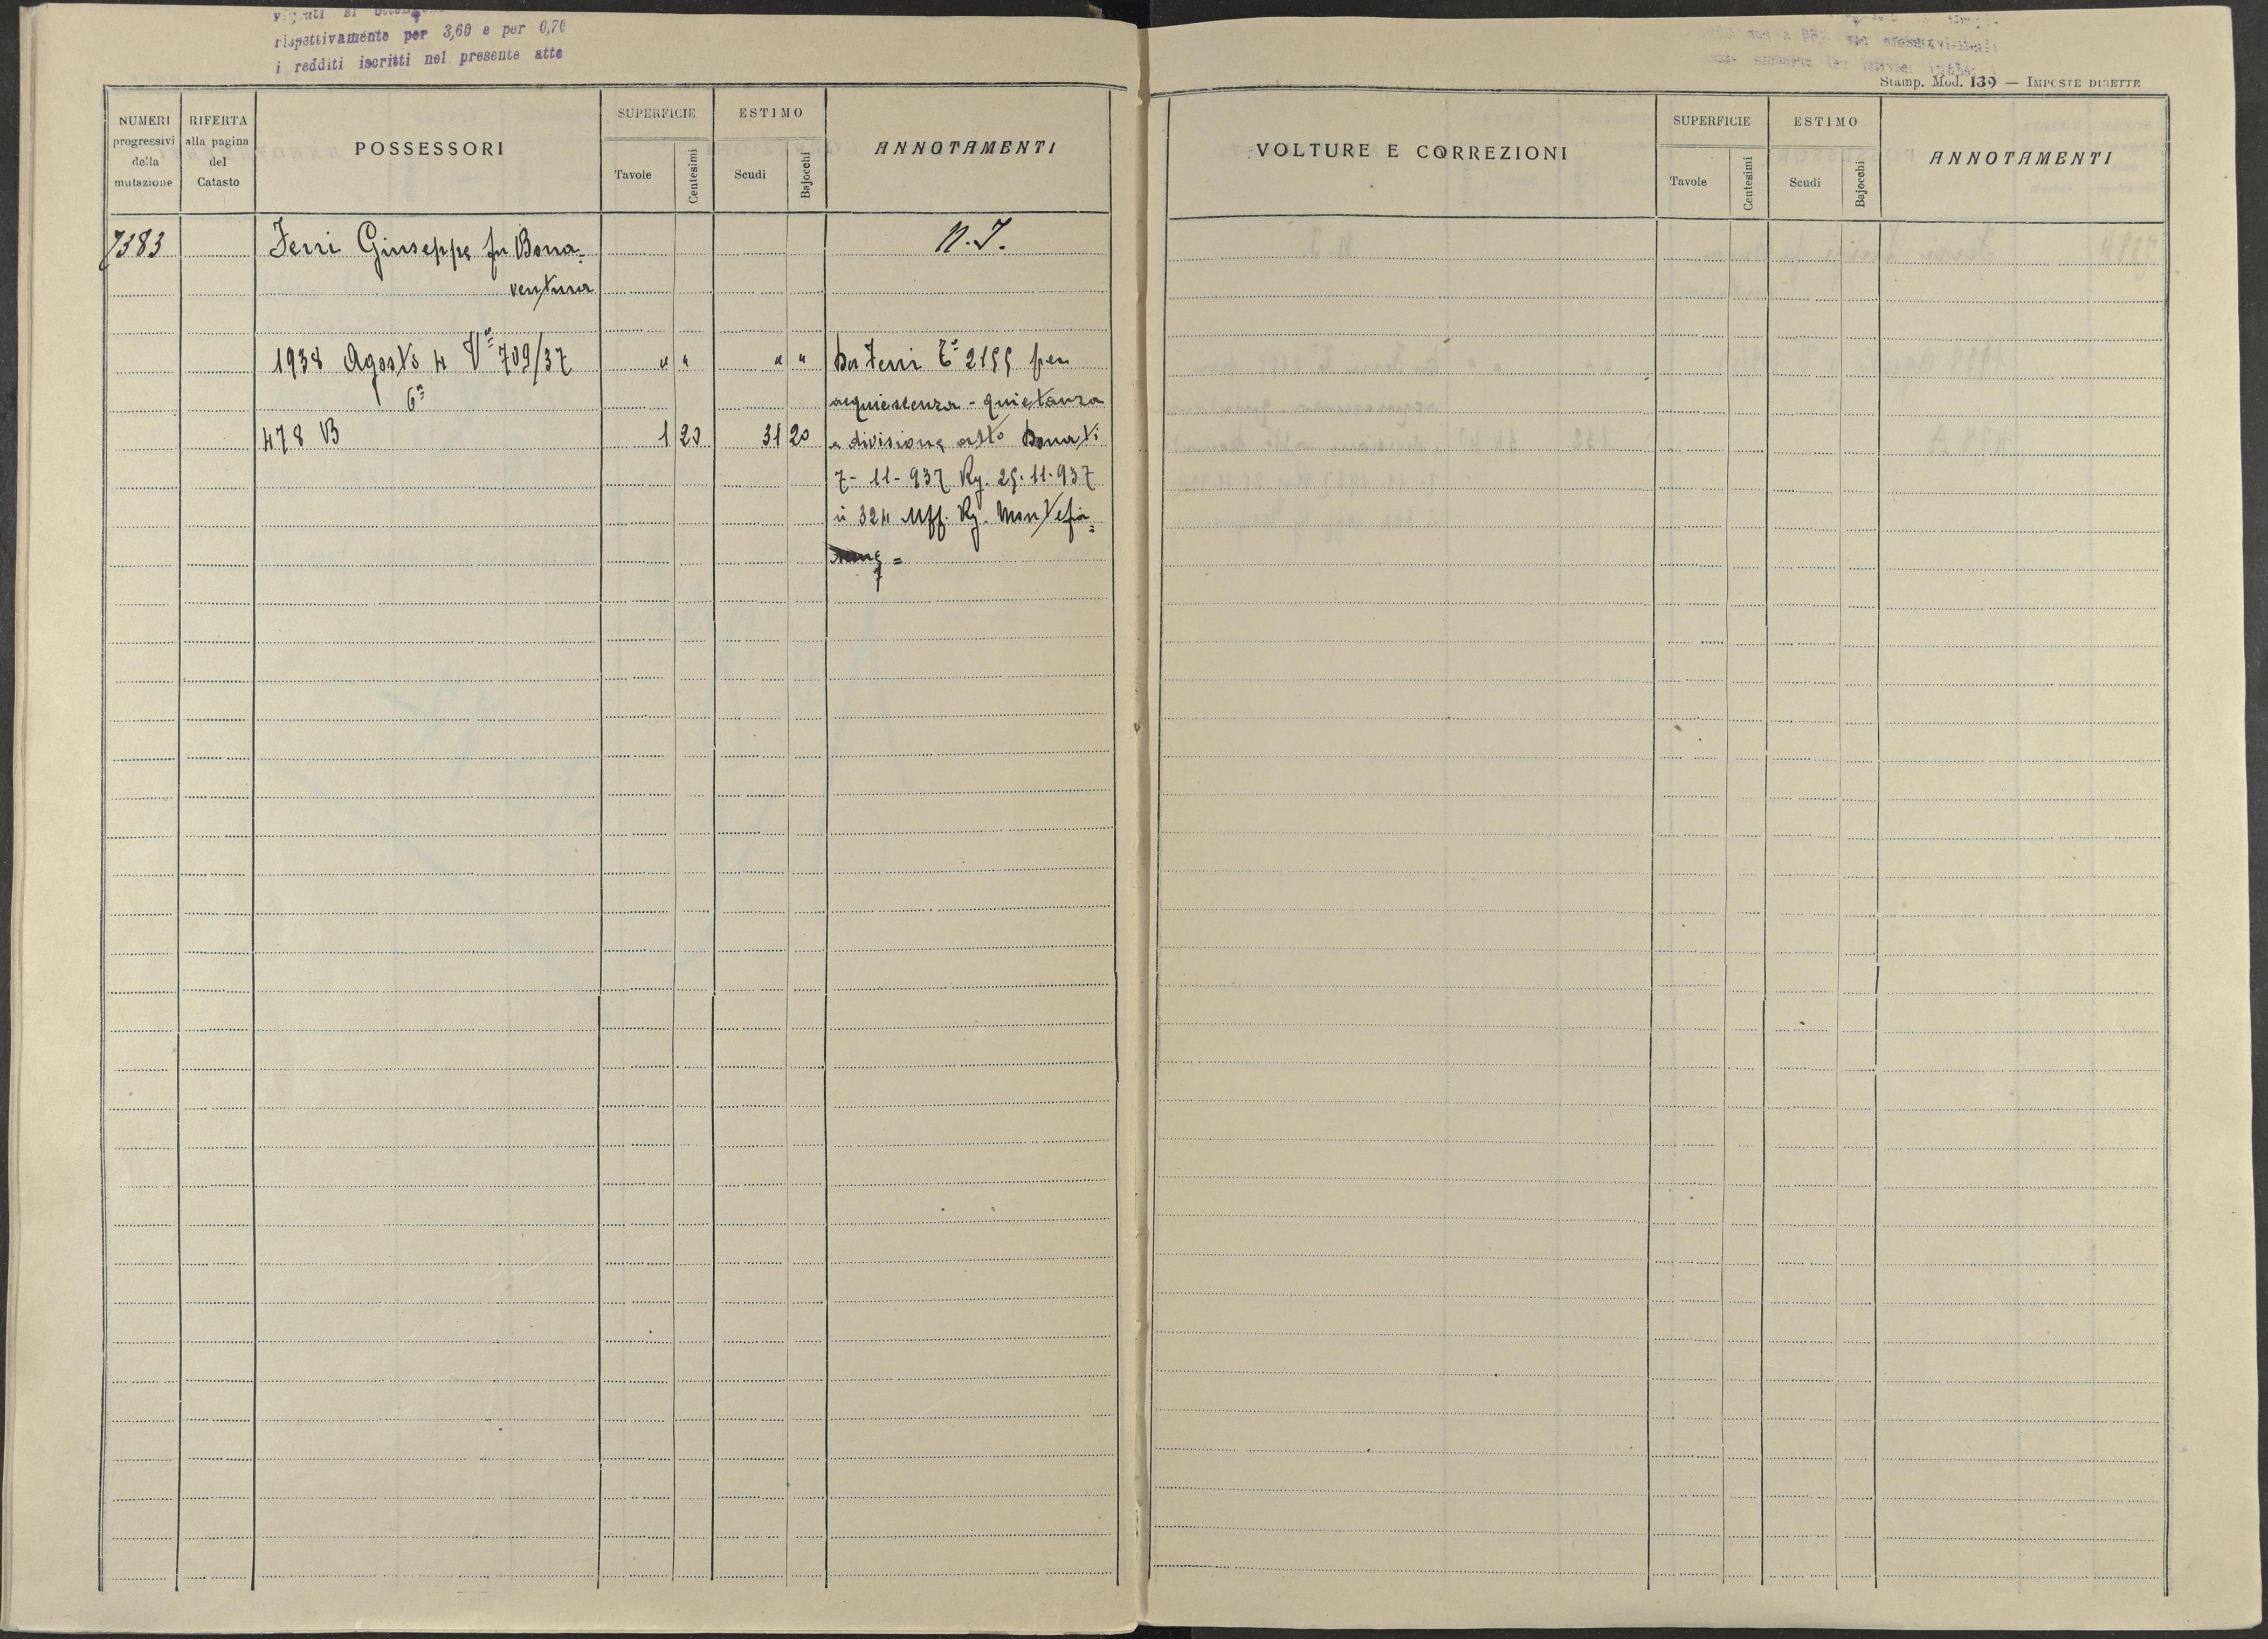 rispettivamente per 3,60 e per 0,70
i redditi iscritti nel presente atto
NUMERI progressivi della mutazione
RIFERTA alla pagina del Catasto
POSSESSORI
SUPERFICIE
Tavole
Centesimi
ESTIMO
Scudi
Bajocchi
ANNOTAMENTI
7383
Ferri Giuseppe fu Bona-
N. I.
ventura
1938 Agosto 4 Vª 709/37 " " " " Da Ferri Cª 2155 per
6ª
acquiescenza - quietanza
478 B 1 20 31 20 e divisione atto Donati
7-11-937 Rg. 25.11.937
n 324 Uff. Rg. Montefia=
=
Stamp. Mod. 139 — IMPOSTE DIRETTE
VOLTURE E CORREZIONI
SUPERFICIE
Tavole
Centesimi
ESTIMO
Scudi
Bajocchi
ANNOTAMENTI